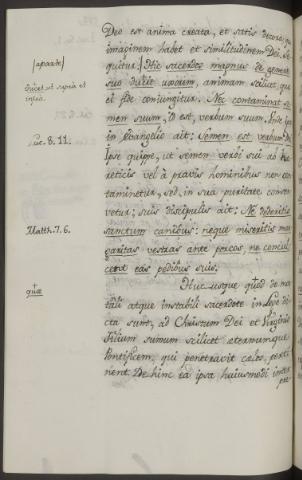 Deo est anima creata, et satis decore
imaginem habet et similitudinem Dei. Se
[aparte]
quitur: Hic sacerdos magnus de genere
suo ducit uxorem, animam scilicet, quæ
scilicet ut supra et
infra.
ei fide coniungitur. Nec contaminat se
men suum, id est, verbum suum, unde ipse
Luc. 8. 11.
in evangelio ait: Semen est verbum Dei.
Ipse quippe, ut semen verbi sui ab hæ
reticis vel à pravis hominibus non con
taminetur, sed in sua puritate conser
vetur; suis discipulis ait: Ne dederitis
Matth. 7. 6.
sanctum canibus: neque miseritis mar
garitas vestras ante porcos, ne concul
cent eas pedibus suis.
Huc usque quæ de mor
quæ
tali atque instabili sacerdote in lege di
cta sunt, ad Christum Dei et Virginis
Filium summum scilicet æternumque
Pontificem, qui penetravit cælos, perti
nent. Dehinc ea ipsa huiusmodi inter
pre-